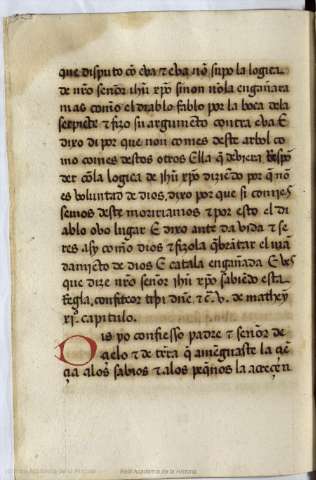 que disputo cõ eua ⁊ eua nõ supo la logica
de nr̃o señor ihũ xp̃o sinon nõla engañara
mas como el diablo fablo por la boca dela
serpiẽte ⁊ fizo su argumẽto contra eua E
dixo di por que non comes deste arbol co
mo comes destos otros Ella q̃ deuiera respõ
der cõla logica de ihũ xp̃o diziẽdo por q̃ nõ
es voluntad de dios, dixo por que si comies
semos deste moririamos ⁊ por esto el di
ablo ouo lugar E dixo ante da vida ⁊ se
res asy como dios ⁊ fizola q̃brãtar el mã
damyẽto de dios E catala engañada E
que dize nr̃o señor ihũ xp̃o sabiẽdo esta
Regla, confiteor tibi dñe ⁊c̃. de mathey
xjº capitulo.
Dis yo confiesso padre ⁊ señor de
çielo ⁊ de trr̃a q̃ amẽguaste la çiẽ
çia alos sabios ⁊ alos peq̃nos la acreçẽ
Real Academia de la Historia